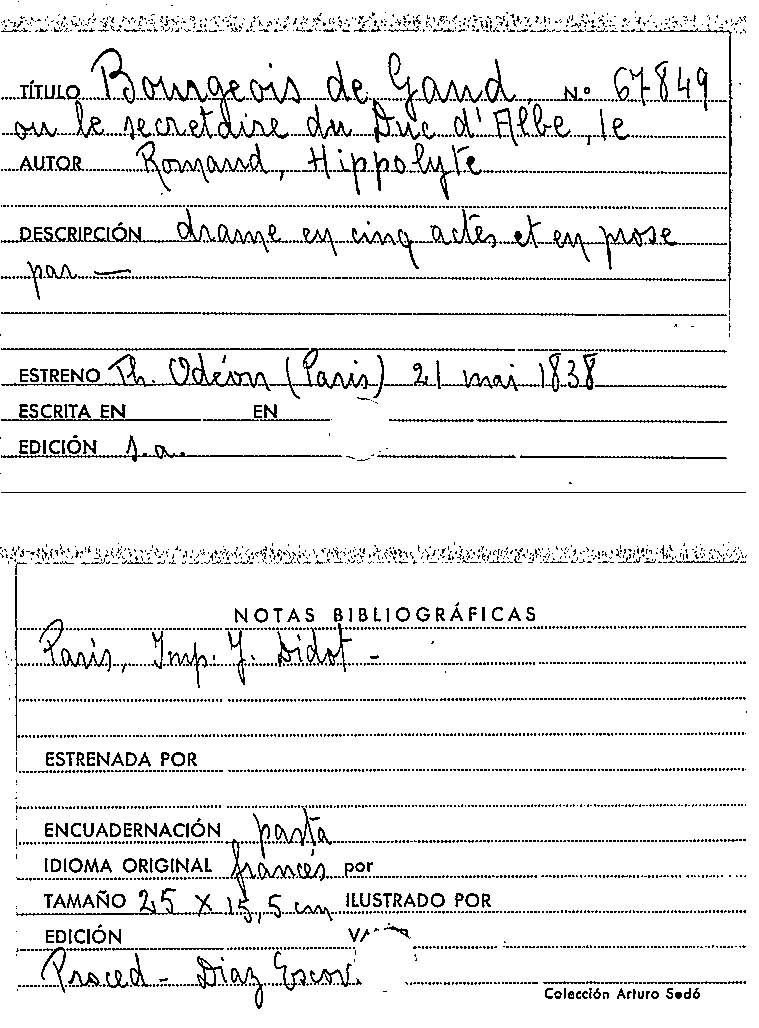 TÍTULO Bourgeois de Gand Nº 67849
ou le secretaire du Duc d'Albe, le
AUTOR Romand, Hippolyte
DESCRIPCIÓN drame en cinq actes et en prose
par —
ESTRENO Th. Odéon (Paris) 21 mai 1838
ESCRITA EN EN
EDICIÓN s.a.
NOTAS BIBLIOGRÁFICAS
Paris, Imp. J. Didot -
ESTRENADA POR
ENCUADERNACIÓN pasta
IDIOMA ORIGINAL francés por
TAMAÑO 25 x 15,5 cm ILUSTRADO POR
EDICIÓN
Proced - Diaz Escov.
Colección Arturo Sedó